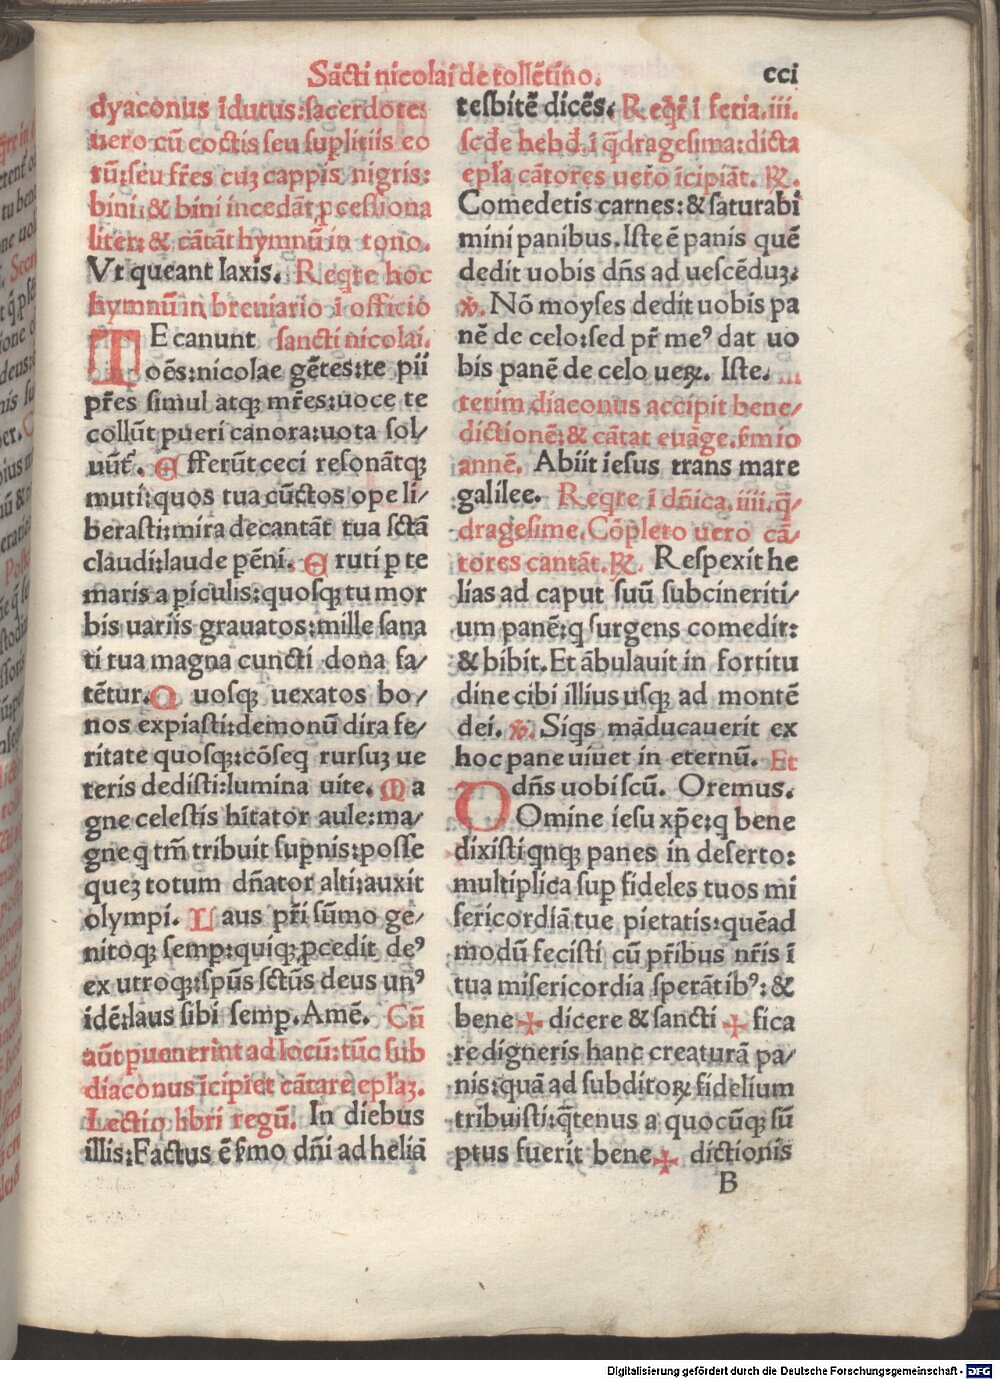 Sācti nicolai de tollētino. cci
dyaconus īdutus:sacerdotes
uero cū coctis seu supliciis eo
rū:seu fr̄es cuȝ cappis nigris:
bini:& bini incedāt ꝓcessiona
liter:& cātāt hymnū in tono.
Vt queant laxis. Reqre hoc
hymnū in breuiario ī officio
TE canunt sancti nicolai.
oēs:nicolae gētes:te pii
pr̄es simul atqꝫ mr̄es:uoce te
collūt pueri canora:uota sol/
uūt. Efferūt ceci resonātqꝫ
muti:quos tua cūctos ope li/
berasti:mira decantāt tua sctā
claudi:laude pēni. Eruti ꝑ te
maris a ꝑiculis:quosqꝫ tu mor
bis uariis grauatos:mille sana
ti tua magna cuncti dona fa/
tētur. Quosqꝫ uexatos bo/
nos expiasti:demonū dira fe/
ritate quosqꝫ:cōseq̄ rursuȝ ue
teris dedisti:lumina uite. Ma
gne celestis hītator aule:ma/
gne q tm̄ tribuit suꝑnis:posse
queȝ totum dn̄ator alti:auxit
olympi. Laus pr̄i sūmo ge/
nitoqꝫ semꝑ:quiqꝫ ꝓcedit deꝰ
ex utroqꝫ:spūs sctūs deus unꝰ
idē:laus sibi semꝑ. Amē. Cū
aūt ꝑuenerint ad locū:tūc sub
diaconus īcipiet cātare epl̄aȝ.
Lectio libri regū. In diebus
illis:Factus ē s̄mo dn̄i ad heliā
tesbitē dicēs. Reqr̄ ī feria.iii.
scd̄e hebd̄.ī q̄dragesima:dicta
epl̄a cātores uero īcipiāt. ℟.
Comedetis carnes:& saturabi
mini panibus. Iste ē panis quē
dedit uobis dn̄s ad uescēduȝ.
℣. Nō moyses dedit uobis pa
nē de celo:sed pr̄ meꝰ dat uo
bis panē de celo ueꝝ. Iste. In
terim diaconus accipit bene/
dictionē:& cātat euāge.s̄m io
annē. Abiit iesus trans mare
galilee. Reqre ī dn̄ica.iiii.q̄/
dragesime. Cōpleto uero cā/
tores cantāt. ℟. Respexit he
lias ad caput suū subcineriti/
um panē:q surgens comedit:
& bibit. Et ābulauit in fortitu
dine cibi illius usqꝫ ad montē
dei. ℣. Siqs māducauerit ex
hoc pane uiuet in eternū. Et
dn̄s uobiscū. Oremus.
DOmine iesu xp̄e:q bene
dixisti qnqꝫ panes in deserto:
multiplica suꝑ fideles tuos mi
sericordiā tue pietatis:quēad
modū fecisti cū pr̄ibus nr̄is ī
tua misericordia sperātibꝰ:&
bene ✠ dicere & sancti ✠ fica
re digneris hanc creaturā pa/
nis:quā ad subditoꝝ fidelium
tribuisti:q̄tenus a quocūqꝫ sū
ptus fuerit bene ✠ dictionis
B
Digitalisierung gefördert durch die Deutsche Forschungsgemeinschaft - DFG